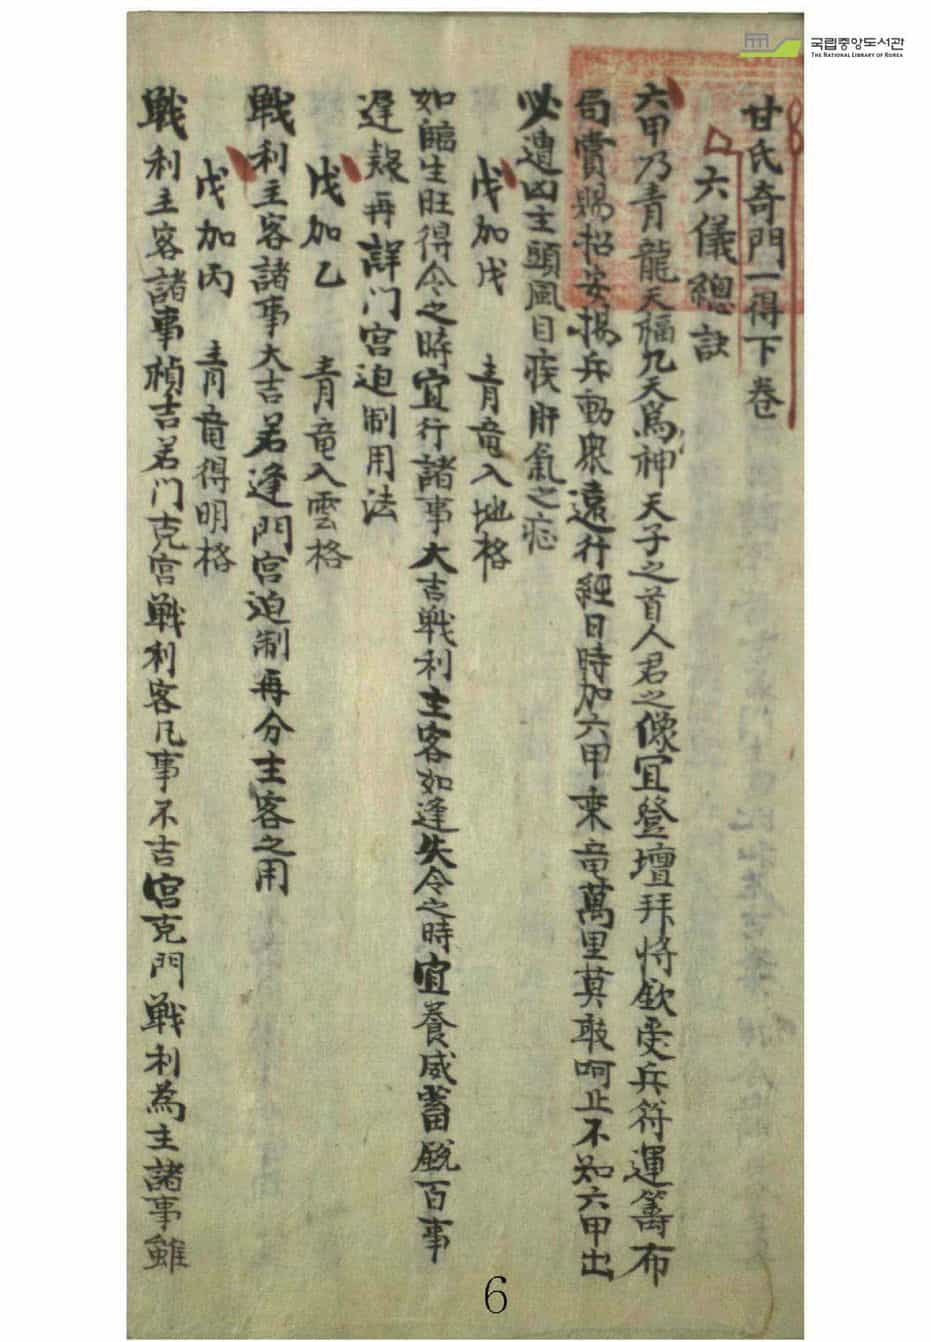 국립중앙도서관
THE NATIONAL LIBRARY OF KOREA
甘氏奇門一得下卷
六儀總訣
六甲乃青龍天福九天為神天子之首人君之像宜登壇拜将欽受兵符運籌布
局賞賜招安揚兵動衆遠行經日時加六甲乗竜萬里莫敢呵止不知六甲出
必遭凶主頭風目疾肝氣之症
戊加戊 青竜入地格
如臨生旺得令之時宜行諸事大吉戦利主客如逢失令之時宜養威蓄銳百事
遅疑再詳门宮迫制用法
戊加乙 青竜入雲格
戦利主客諸事大吉若逢門宮迫制再分主客之用
戊加丙 青竜得明格
戦利主客諸事禎吉若门克宮戦利客凡事不吉宮克門戦利為主諸事雖
6